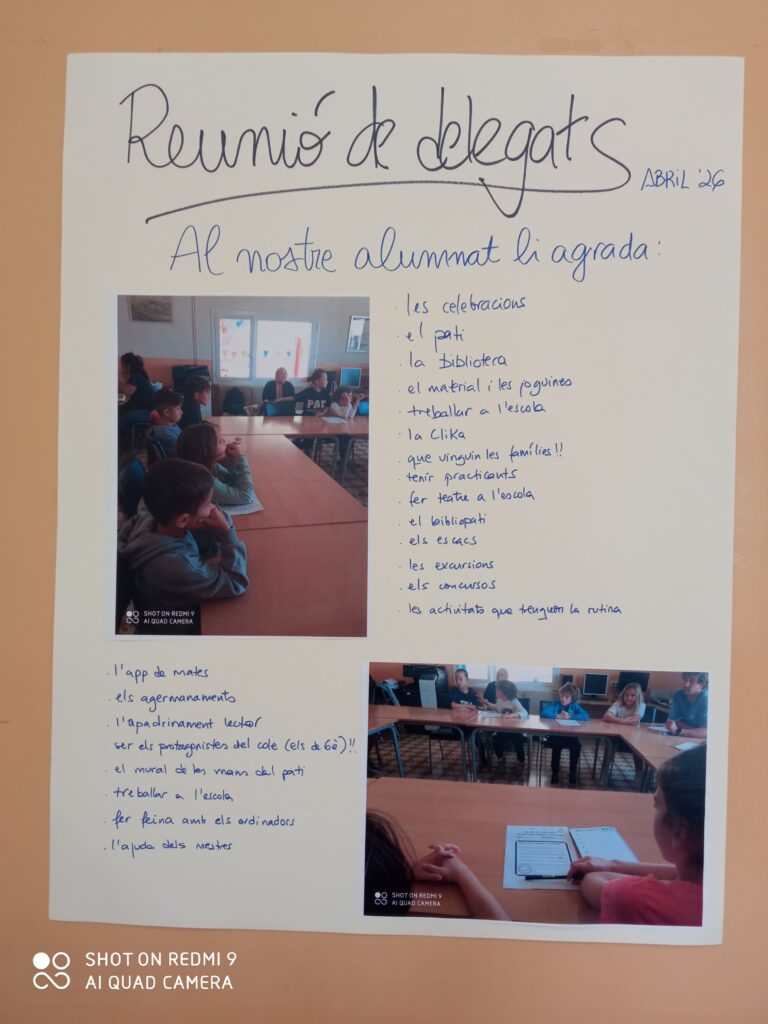 Reunió de delegats
ABRIL '26
Al nostre alumnat li agrada:
· les celebracions
· el pati
· la biblioteca
· el material i les joguines
· treballar a l'escola
· la Clika
· que vinguin les famílies!!
· tenir practicants
· fer teatre a l'escola
· el bibliopati
· els escacs
· les excursions
· els concursos
· les activitats que trenquen la rutina
SHOT ON REDMI 9
AI QUAD CAMERA
· l'app de mates
· els agermanaments
· l'apadrinament lector
· ser els protagonistes del cole (els de 6è)!!
· el mural de les mans del pati
· treballar a l'escola
· fer feina amb els ordinadors
· l'ajuda dels mestres
SHOT ON REDMI 9
AI QUAD CAMERA
SHOT ON REDMI 9
AI QUAD CAMERA